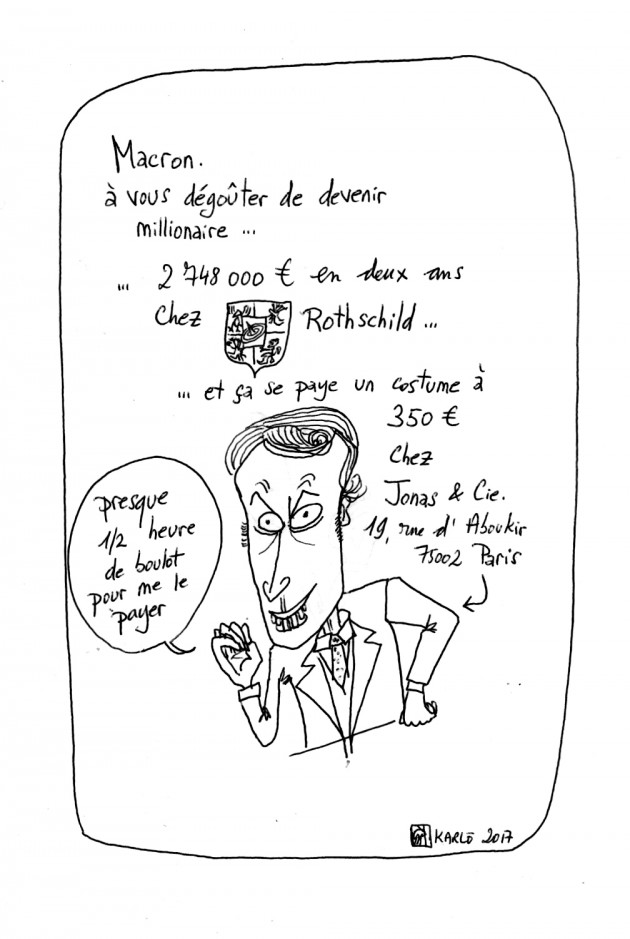 Macron.
à vous dégoûter de devenir
millionaire ...
... 2 748 000 € en deux ans
chez Rothschild ...
... et ça se paye un costume à
350 €
chez
Jonas & Cie.
19, rue d'Aboukir
75002 Paris
presque
1/2 heure
de boulot
pour me le
payer
KARLO 2017